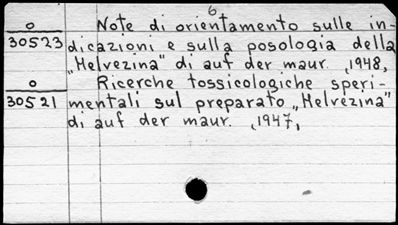 6
0 Note di orientamento sulle in-
30523 dicazioni e sulla posologia della
"Helvezina" di auf der maur. ,1948,
0 Ricerche tossicologiche speri-
30521 mentali sul preparato "Helvezina"
di auf der maur. ,1947,